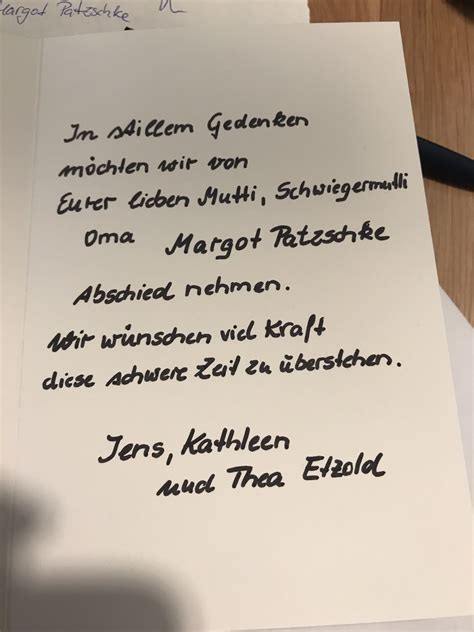 Margot Patzschke
In stillem Gedenken
möchten wir von
Eurer lieben Mutti, Schwiegermutti
Oma Margot Patzschke
Abschied nehmen.
Wir wünschen viel Kraft
diese schwere Zeit zu überstehen.
Jens, Kathleen
und Thea Etzold